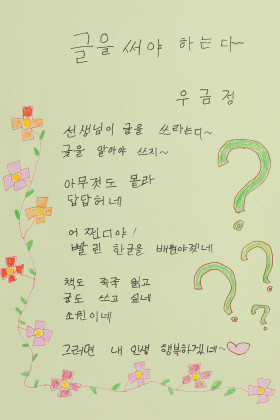 글을 써야 하는디~
우금정
선생님이 글을 쓰라는디~
글을 알아야 쓰지~
아무것도 몰라
답답허네
어쩐디야!
빨린 한글을 배워야겠네
책도 죽죽 읽고
글도 쓰고 싶네
소원이네
그러면 내 인생 행복하겠네~